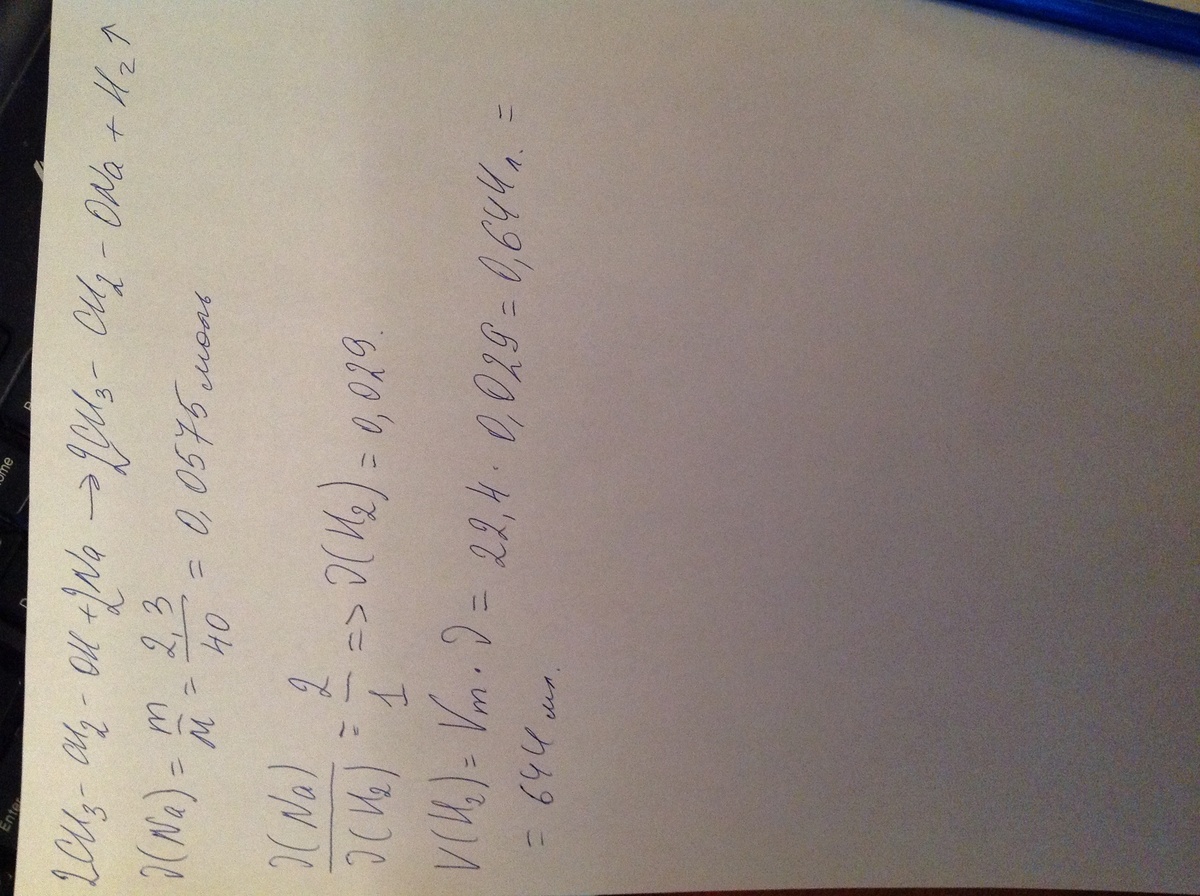 2CH₃ - CH₂ - OH + 2Na → 2CH₃ - CH₂ - ONa + H₂↑
ν(Na) = m/M = 2,3/40 = 0,0575 моль
ν(Na)/ν(H₂) = 2/1 => ν(H₂) = 0,029.
V(H₂) = Vm · ν = 22,4 · 0,029 = 0,644 л. =
= 644 мл.
Enter